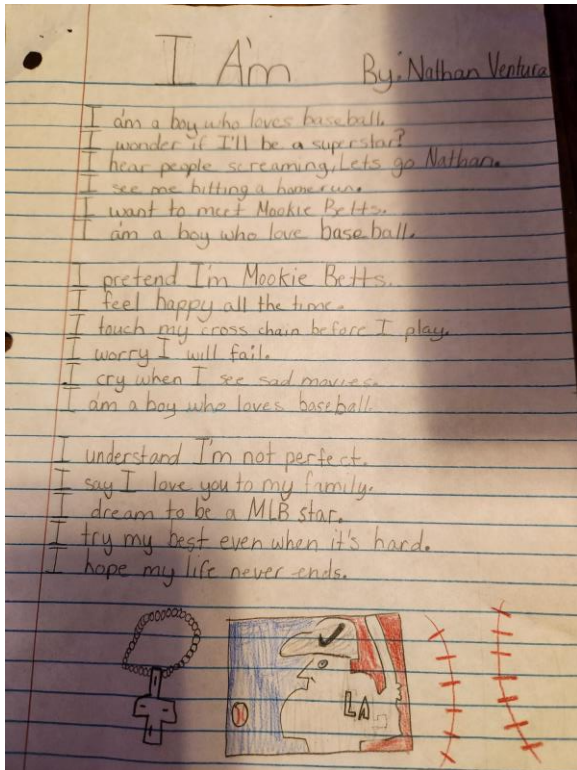 I Am
By: Nathan Ventura
I am a boy who loves baseball.
I wonder if I'll be a superstar?
I hear people screaming, Lets go Nathan.
I see me hitting a homerun.
I want to meet Mookie Betts.
I am a boy who love baseball.
I pretend I'm Mookie Betts.
I feel happy all the time.
I touch my cross chain before I play.
I worry I will fail.
I cry when I see sad movies.
I am a boy who loves baseball.
I understand I'm not perfect.
I say I love you to my family.
I dream to be a MLB star.
I try my best even when it's hard.
I hope my life never ends.
LA